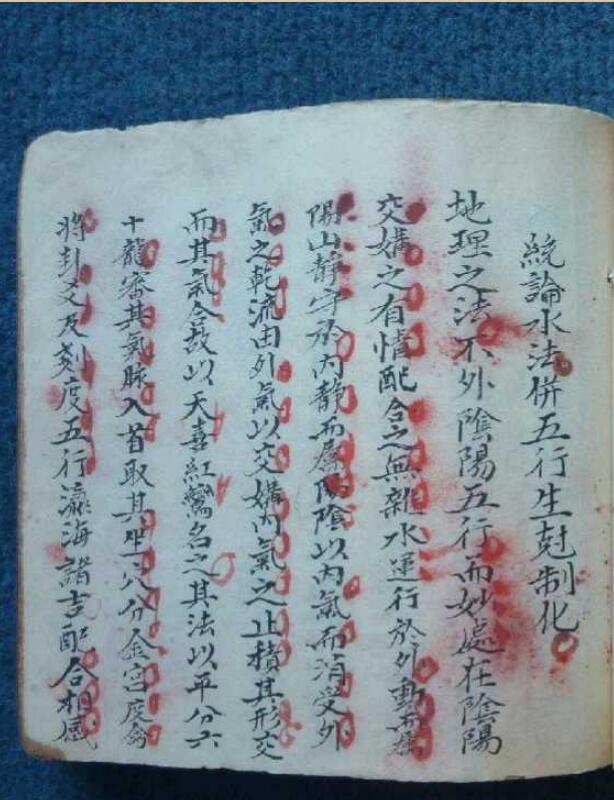 統論水法併五行生尅制化
地理之法不外陰陽五行而妙處在陰陽
交媾之有情配合之無雜水運行於外動而為
陽山靜守於內靜而為陰陰以內氣而消受外
氣之乾流由外氣以交媾內氣之止積其形交
而其氣合故以天喜紅鸞名之其法以平分六
十龍審其氣脉入首取其坐穴分金宮度
將卦爻及刻度五行瀛海諸吉配合相感